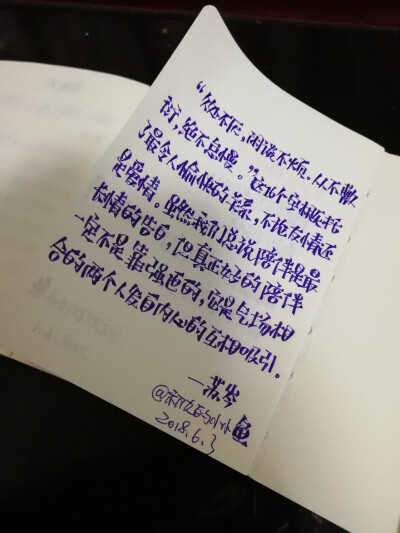 “久处不厌,闲谈不烦,从不敷
衍,绝不怠慢。”这概括
了最令人愉快的关系,不论友情还
是爱情。虽然我们总说陪伴是最
长情的告白,但真正好的陪伴
一定不是靠强迫的,它是气场相
合的两个人发自内心的互相吸引。
—苏岑
@小小鱼
2018.6.3